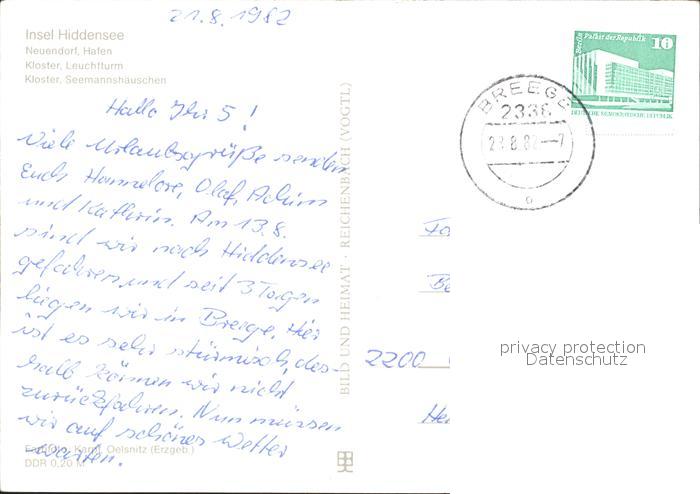 21.8.1982
Insel Hiddensee
Neuendorf, Hafen
Kloster, Leuchtturm
Kloster, Seemannshäuschen
Hallo Ihr 5!
Viele Urlaubsgrüße senden
Euch Hannelore, Olaf, Achim
und Kathrin. Am 13.8.
sind wir nach Hiddensee
gefahren und seit 3 Tagen
liegen wir in Breege. Hier
ist es sehr stürmisch, des-
halb können wir nicht
zurückfahren. Nun müssen
wir auf schönes Wetter
warten.
Farbfoto: Kampf, Oelsnitz (Erzgeb.)
DDR 0,20 M
BILD UND HEIMAT · REICHENBACH (VOGTL)
Berlin Palast der Republik 10
DEUTSCHE DEMOKRATISCHE REPUBLIK
BREEGE
2338
23.8.82-7
Fa
Be
2200
He
privacy protection
Datenschutz